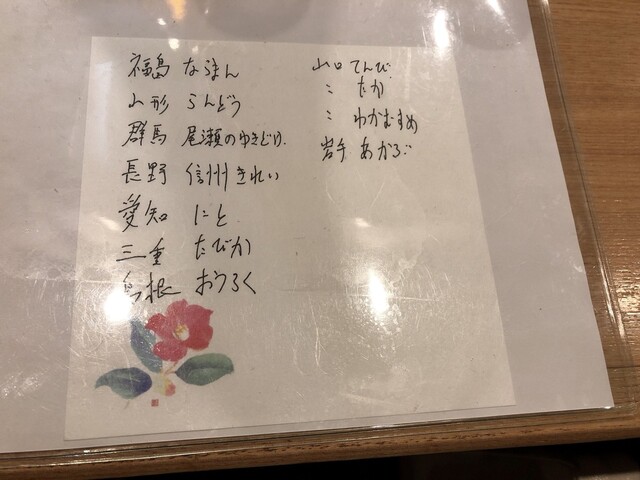 福島 ならまん
山形 らんどう
群馬 尾瀬のゆきどけ
長野 信州きれい
愛知 にと
三重 たびか
島根 おうろく
山口 てんび
〃 たか
〃 わかむすめ
岩手 あがらぶ